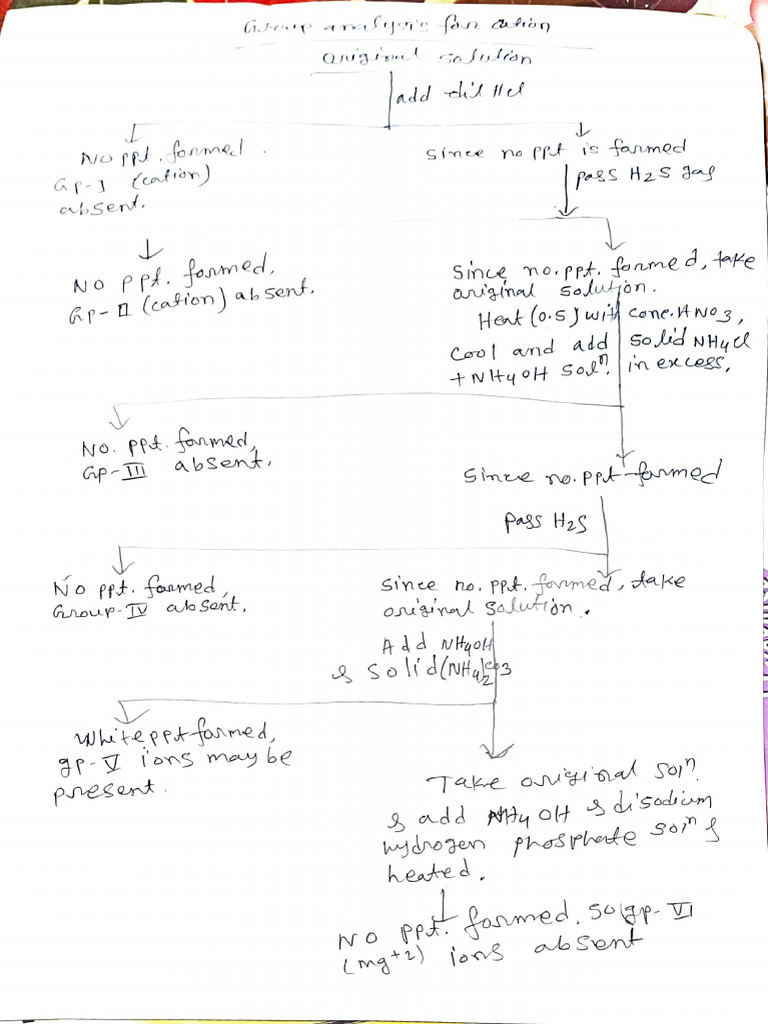 Group analysis for cation
Original solution
add dil HCl
No ppt. formed.
Gp-I (cation)
absent.
Since no ppt is formed
pass H2S gas
No ppt. formed,
Gp-II (cation) absent.
Since no.ppt. formed, take
original solution.
Heat (0.5) with conc. HNO3,
cool and add solid NH4Cl
+ NH4OH soln. in excess.
No. ppt. formed,
Gp-III absent.
Since no.ppt formed
pass H2S
No ppt. formed,
Group-IV absent.
Since no. ppt. formed, take
original solution.
Add NH4OH
& solid (NH4)2CO3
White ppt formed,
gp-V ions may be
present.
Take original soln.
& add NH4OH & disodium
hydrogen phosphate soln &
heated.
No ppt. formed. So gp-VI
(mg+2) ions absent